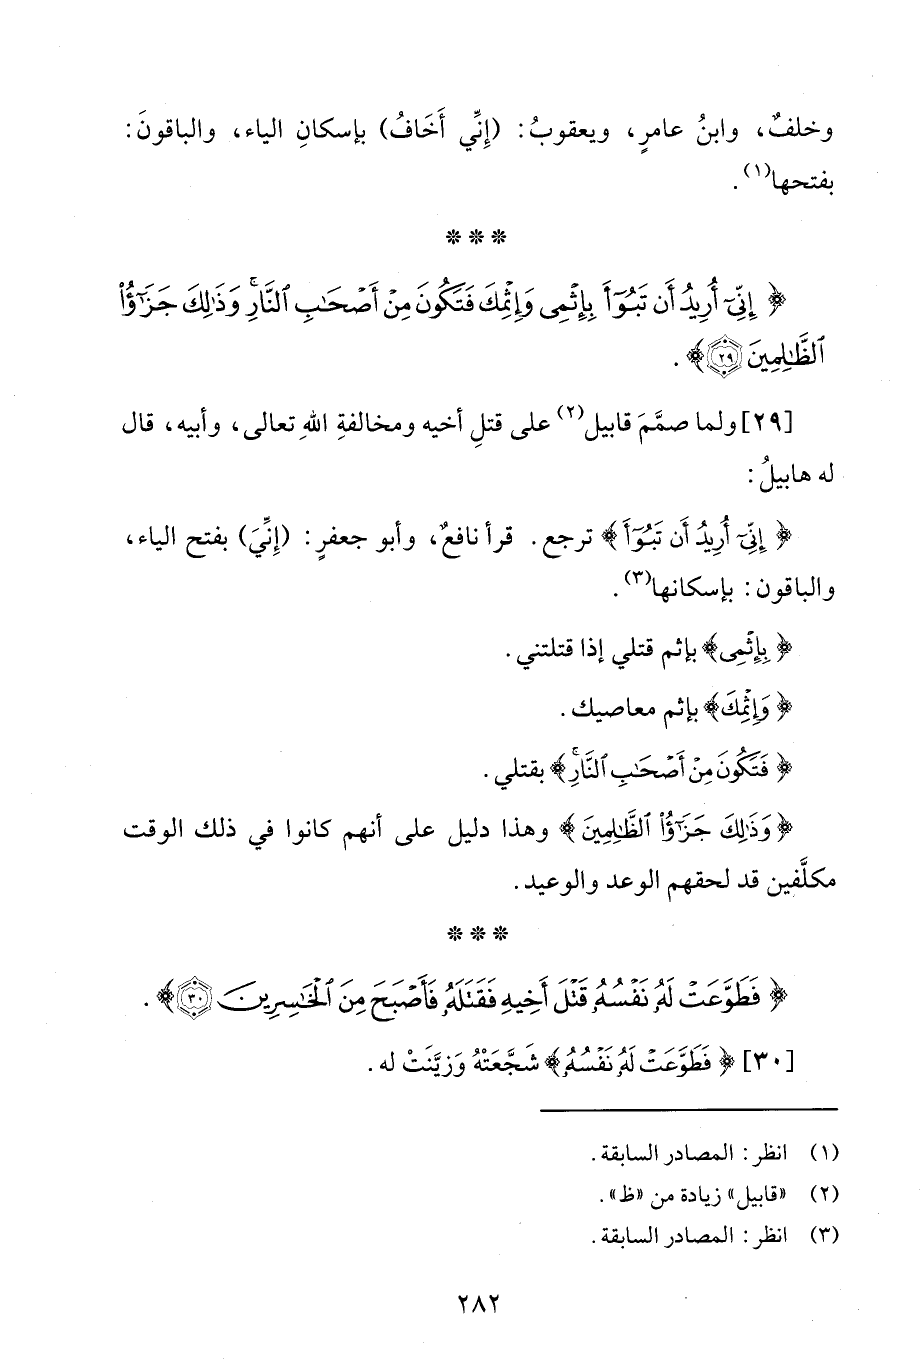 وخلفٌ، وابنُ عامرٍ، ويعقوبُ: (إِنِّي أَخَافُ) بإسكانِ الياء، والباقونَ:
بفتحها(١).
*** 
﴿إِنِّىٓ أُرِيدُ أَن تَبُوٓأَ بِإِثْمِى وَإِثْمِكَ فَتَكُونَ مِنْ أَصْحَـٰبِ ٱلنَّارِۚ وَذَٰلِكَ جَزَٰٓؤُا۟
ٱلظَّـٰلِمِينَ ٢٩﴾.
[٢٩] ولما صمَّمَ قابيل(٢) على قتلِ أخيه ومخالفةِ اللهِ تعالى، وأبيه، قال
له هابيلُ:
﴿إِنِّىٓ أُرِيدُ أَن تَبُوٓأَ﴾ ترجع. قرأ نافعٌ، وأبو جعفرٍ: (إِنِّيَ) بفتح الياء،
والباقون: بإسكانها(٣).
﴿بِإِثْمِى﴾ بإثم قتلي إذا قتلتني.
﴿وَإِثْمِكَ﴾ بإثم معاصيك.
﴿فَتَكُونَ مِنْ أَصْحَـٰبِ ٱلنَّارِۚ﴾ بقتلي.
﴿وَذَٰلِكَ جَزَٰٓؤُا۟ ٱلظَّـٰلِمِينَ﴾ وهذا دليل على أنهم كانوا في ذلك الوقت
مكلَّفين قد لحقهم الوعد والوعيد.
***
﴿فَطَوَّعَتْ لَهُۥ نَفْسُهُۥ قَتْلَ أَخِيهِ فَقَتَلَهُۥ فَأَصْبَحَ مِنَ ٱلْخَـٰسِرِينَ ٣٠﴾.
[٣٠] ﴿فَطَوَّعَتْ لَهُۥ نَفْسُهُۥ﴾ شَجَّعَتْهُ وَزيَّنَتْ له.
(١) انظر: المصادر السابقة.
(٢) «قابيل» زيادة من «ظ».
(٣) انظر: المصادر السابقة.
٢٨٢